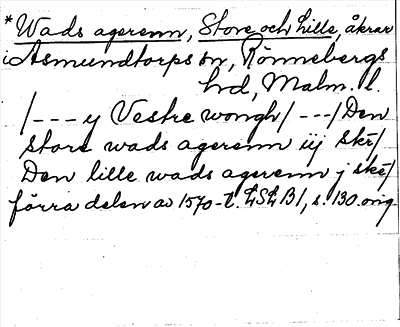 *Wads agerenn, Store och Lille, åkrar
i Asmundtorps sn, Rönnebergs
hd, Malm. l.
/--- y Vestre wongh/---/Den
store wads agerenn iij skr/
Den lille wads agerenn j skr/
förra delen av 1570-t. LSLB1, s. 130. orig.